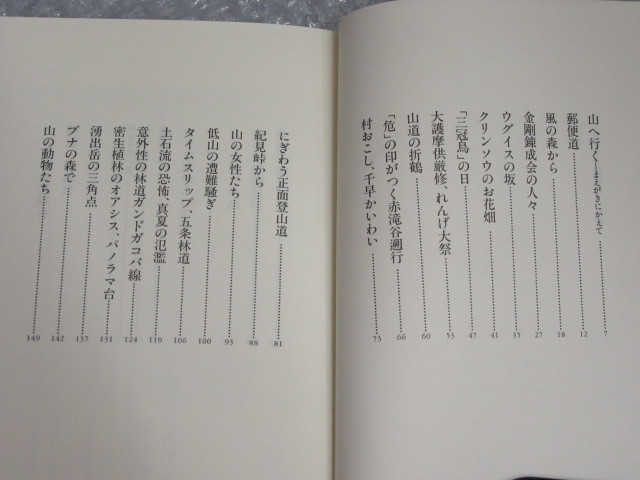 山へ行く―まえがきにかえて………7
郵便道………12
風の森から………18
金剛錬成会の人々………27
ウグイスの坂………35
クリンソウのお花畑………41
「三冠鳥」の日………47
大護摩供厳修、れんげ大祭………53
山道の折鶴………60
「危」の印がつく赤滝谷遡行………66
村おこし、千早かいわい………73
にぎわう正面登山道………81
紀見峠から………88
山の女性たち………93
低山の遭難騒ぎ………100
タイムスリップ、五条林道………106
土石流の恐怖、真夏の氾濫………119
意外性の林道ガンドガコバ線………124
密生植林のオアシス、パノラマ台………131
湧出岳の三角点………137
ブナの森で………142
山の動物たち………149